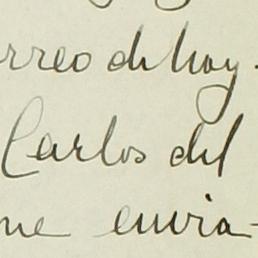 rreo de hoy.
Carlos del
me envia-